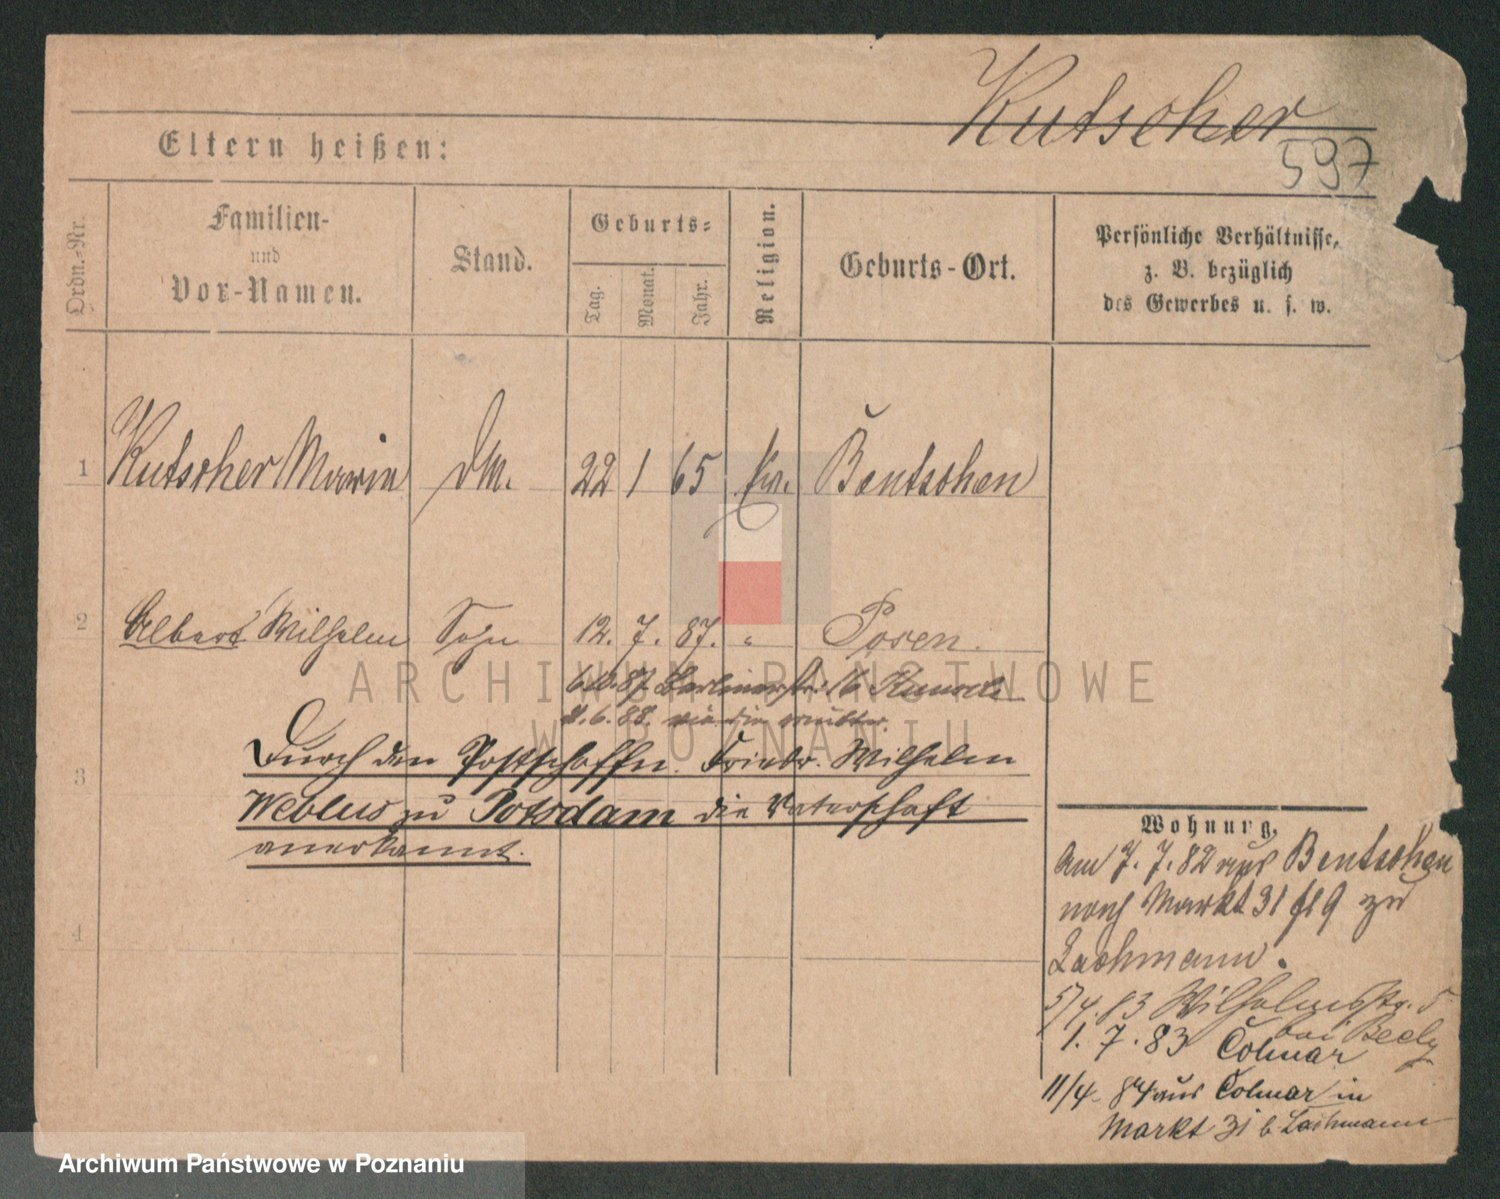 Kutscher
597
Eltern heißen:
Ordn.-Nr.
Familien-
und
Vor-Namen.
Stand.
Geburts=
Tag.
Monat.
Jahr.
Religion.
Geburts-Ort.
Persönliche Verhältnisse,
z. B. bezüglich
des Gewerbes u. s. w.
1 Kutscher Maria DM. 22 1 65 Bentschen
2 Albert Wilhelm Sohn 12. 7. 87. " Posen.
6.10.87. Berlinerstr. 16
6.88.
3 Durch den Postschaffn. Friedr. Wilhelm
zu Potsdam die Vaterschaft
anerkannt.
4
Wohnung.
Am 7. 7. 82 aus Bentschen
nach Markt 31 fl 9 zu
Lachmann.
5/4.83 Wilhelmstr. 5
bei Beely
1. 7. 83 Colmar
11/4. 84 aus Colmar in
Markt 31 b Lachmann
ARCHIWUM PAŃSTWOWE
W POZNANIU
Archiwum Państwowe w Poznaniu